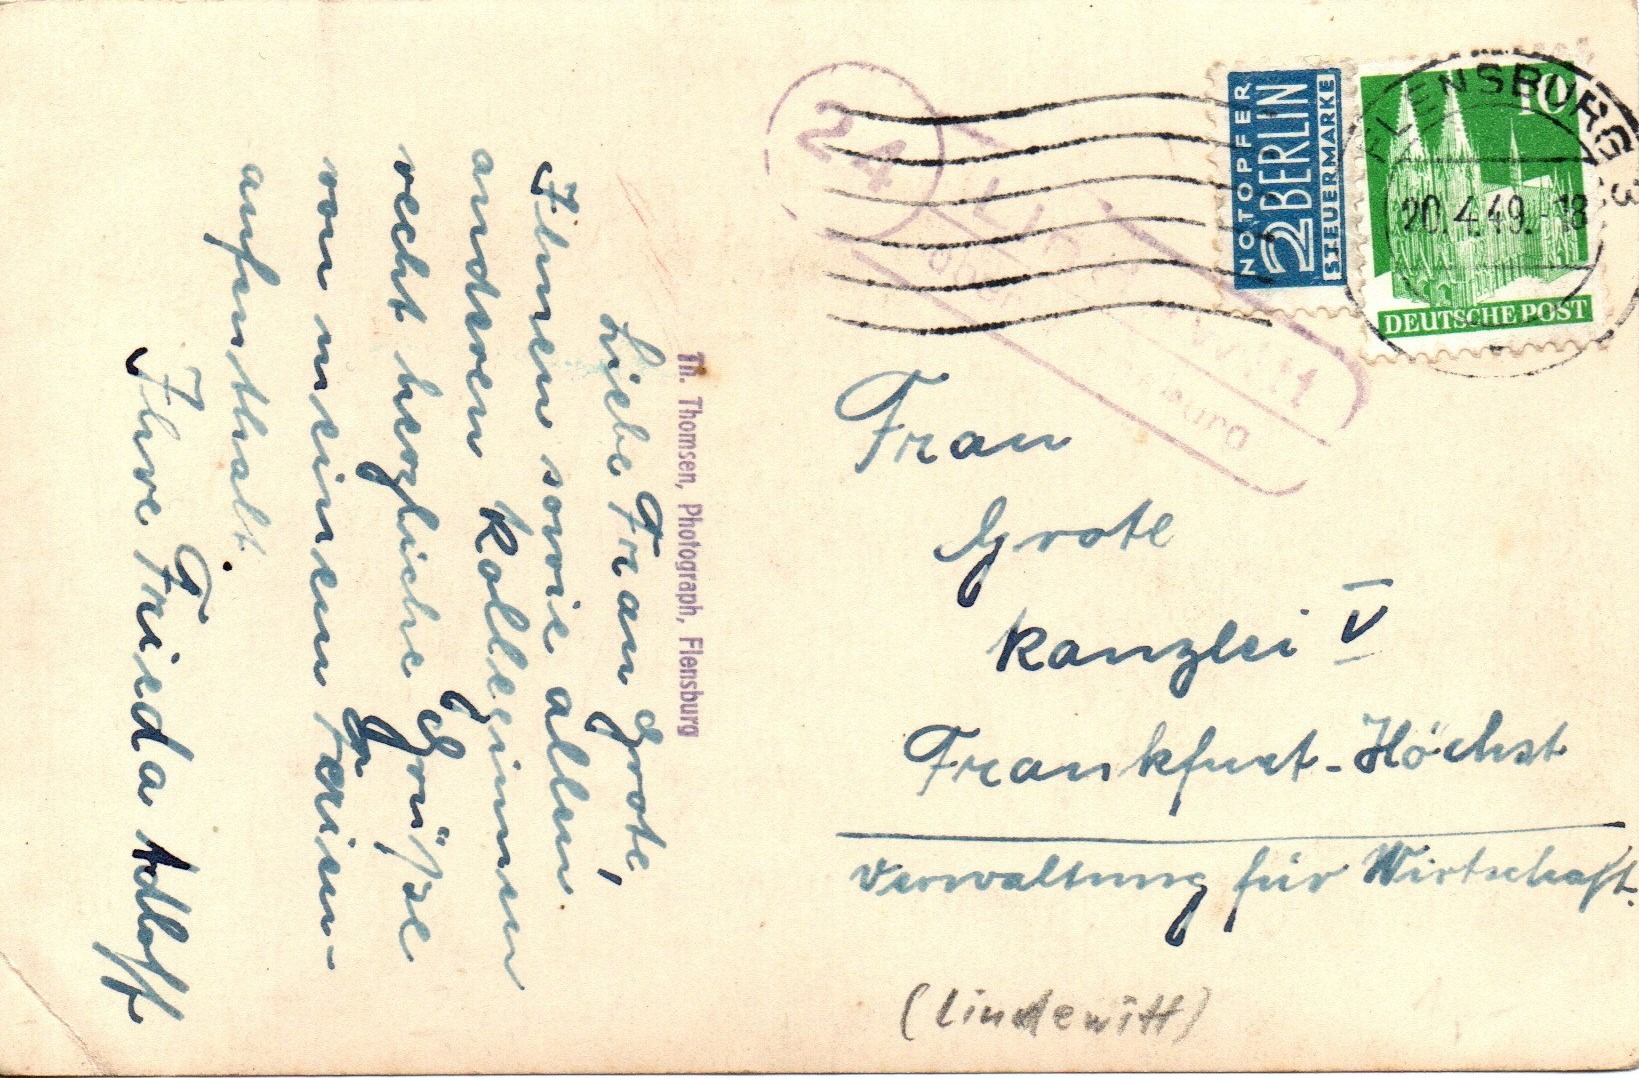 Liebe Frau Grote,
Ihnen sowie allen
anderen Kolleginnen
recht herzliche Grüße
von meinem Ferien-
aufenthalt.
Ihre Frieda Adloff
Th. Thomsen, Photograph, Flensburg
24
über burg
NOTOPFER
2 BERLIN
STEUERMARKE
10
DEUTSCHE POST
FLENSBURG 3
20.4.49.-18
Frau
Grote
Kanzlei V
Frankfurt-Höchst
Verwaltung für Wirtschaft.
(Lindewitt)